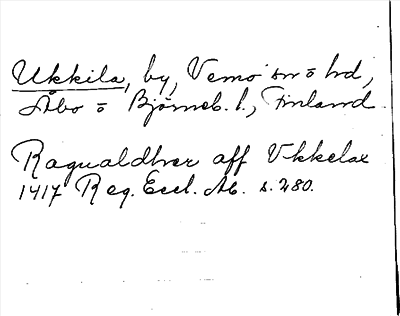 Ukkila, by, Vemo sn o hd,
Åbo o Björneb. l., Finland
Ragualdhver aff Vkkelax
1417 Reg. Eccl. Ab. s. 280.